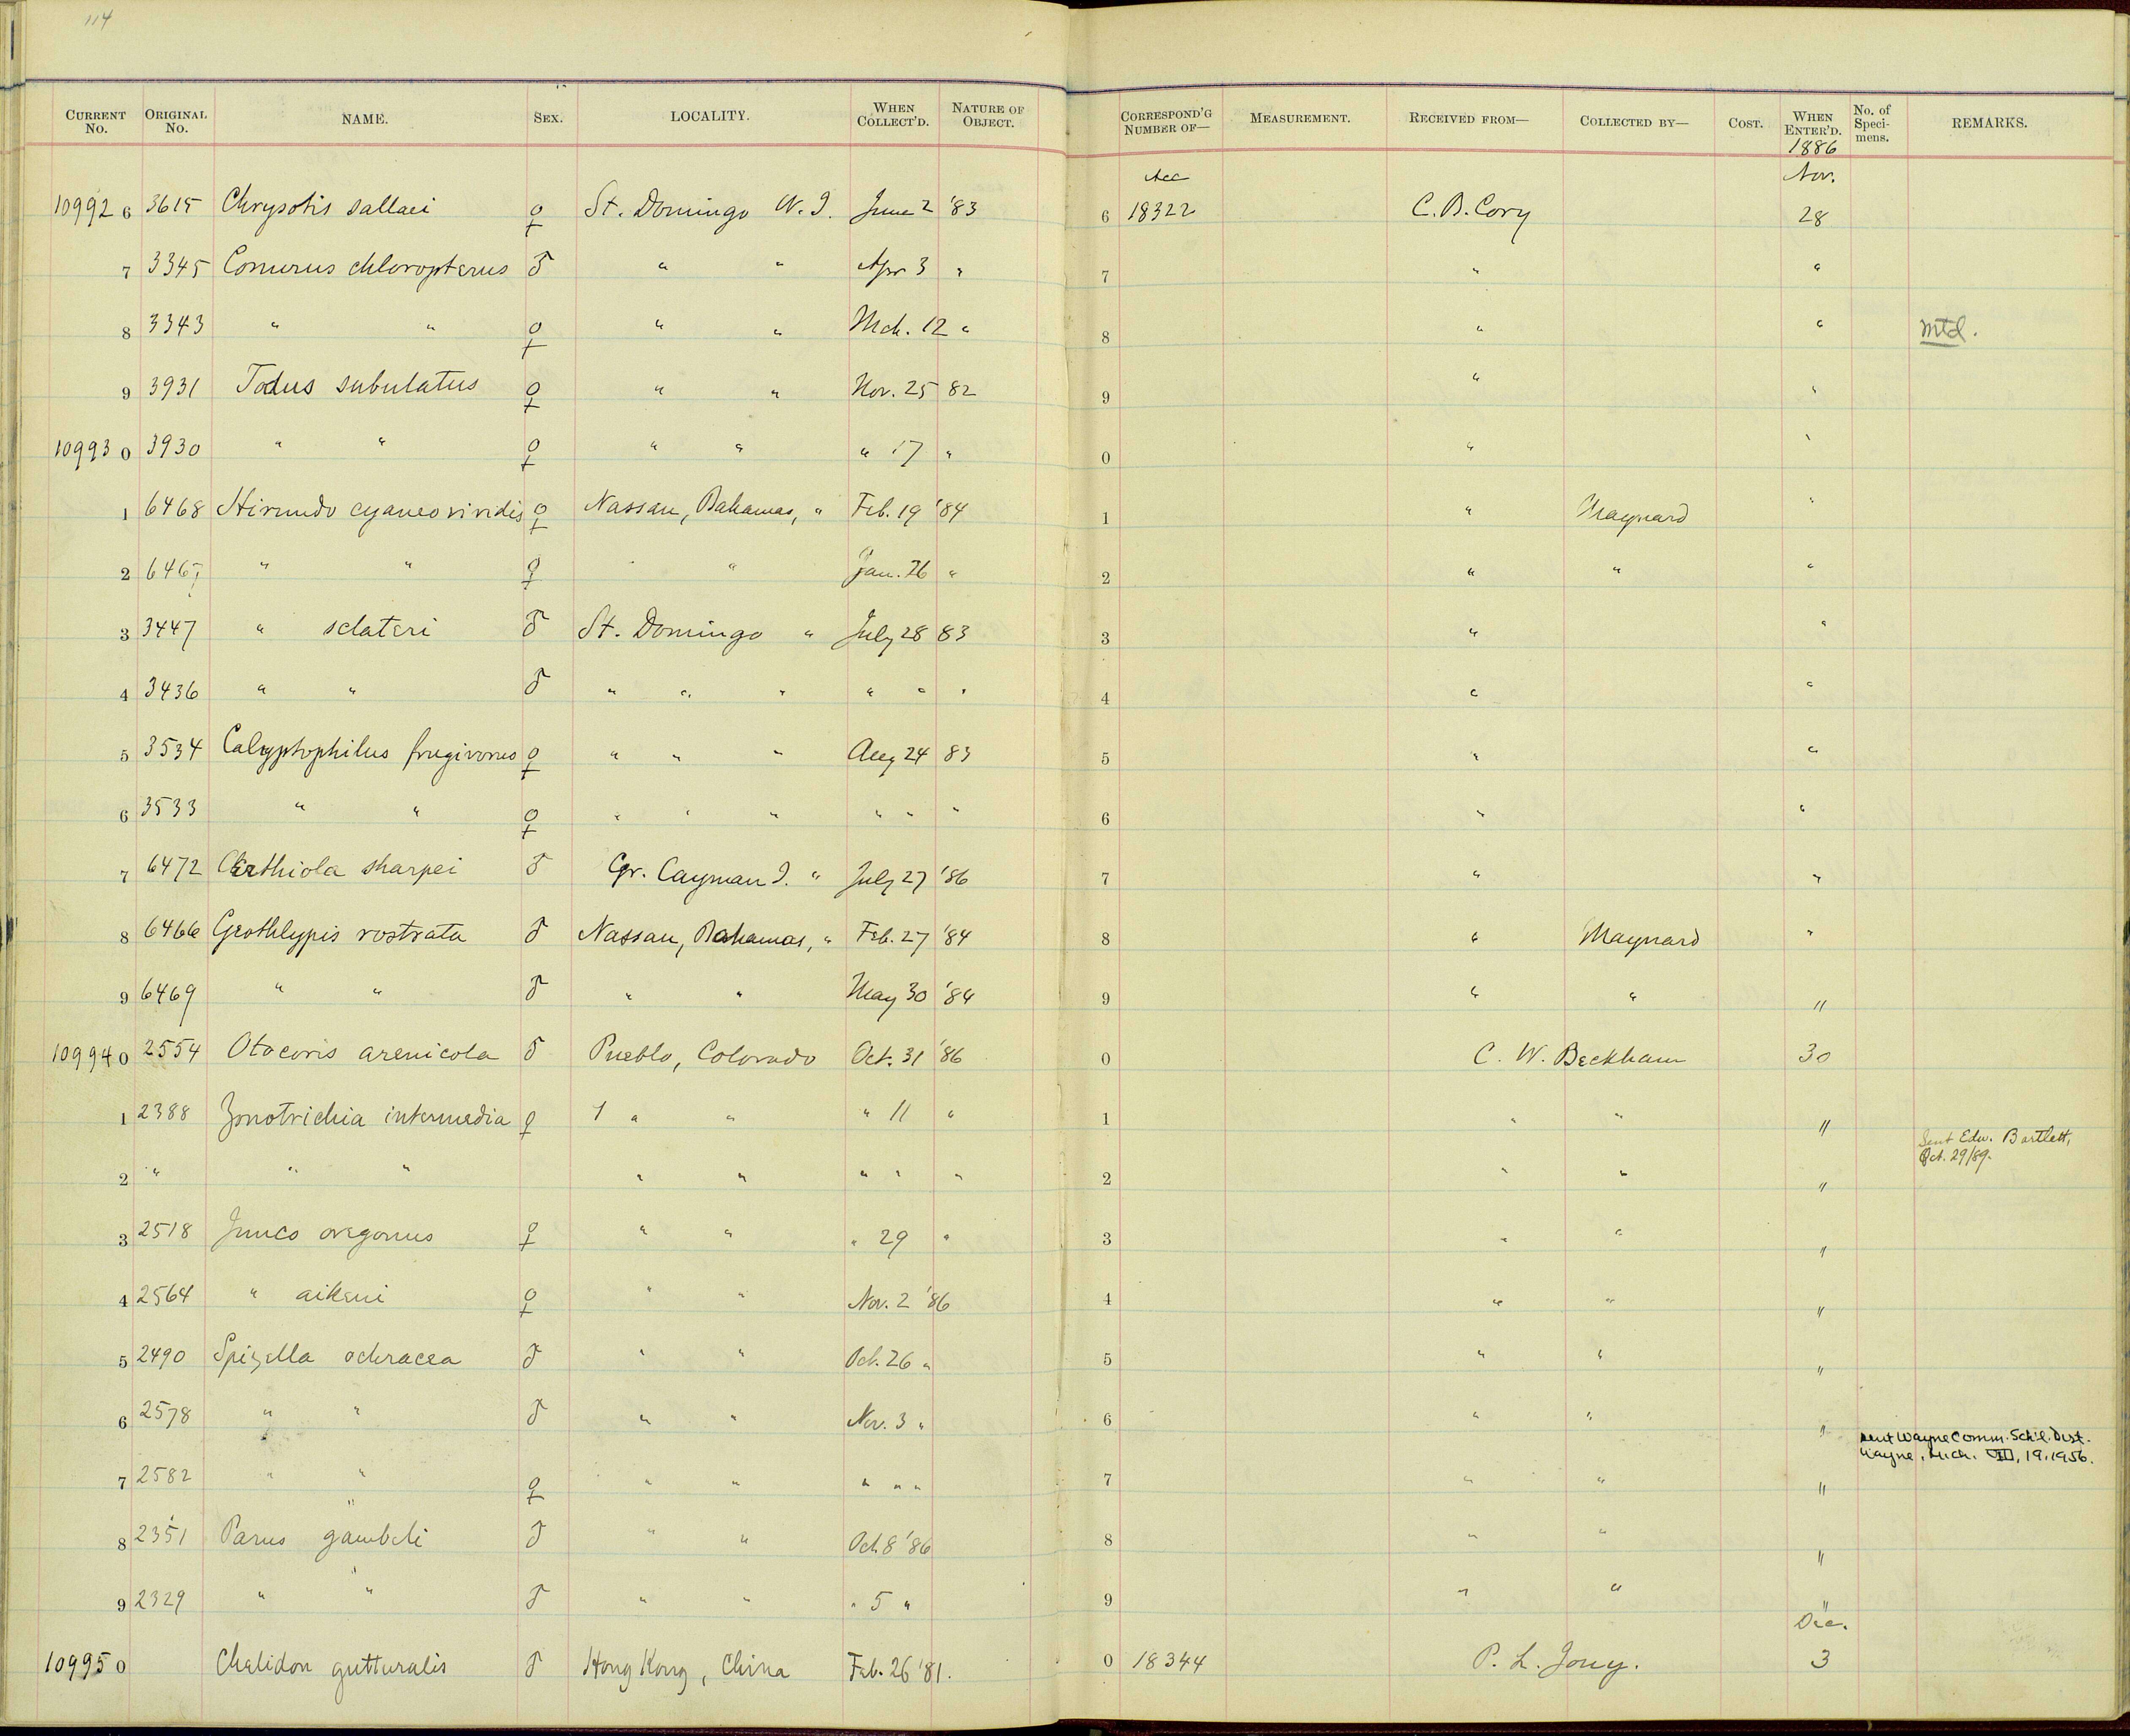 114
CURRENT No. ORIGINAL No. NAME. SEX. LOCALITY. WHEN COLLECT'D. NATURE OF OBJECT. CORRESPOND'G NUMBER OF— MEASUREMENT. RECEIVED FROM— COLLECTED BY— COST. WHEN ENTER'D. No. of Speci-mens. REMARKS.
1886
Acc Nov.
109926 3615 Chrysotis sallaei ♀ St. Domingo W.I. June 2 '83 6 18322 C.B. Cory 28
7 3345 Conurus chloropterus ♂ " " Apr 3 " 7 " "
8 3343 " " ♀ " " Mch. 12 " 8 " " Mtd.
9 3931 Todus subulatus ♀ " " Nov. 25 82 9 " "
109930 3930 " " ♀ " " " 17 " 0 " "
1 6468 Hirundo cyaneoviridis ♀ Nassau, Bahamas, " Feb. 19 '84 1 " Maynard "
2 6467 " " ♀ " " Jan. 26 " 2 " " "
3 3447 " sclateri ♂ St. Domingo " July 28 83 3 " "
4 3436 " " ♂ " " " " " " 4 " "
5 3534 Calyptophilus frugivorus ♀ " " " Aug 24 83 5 " "
6 3533 " " ♀ " " " " " " 6 " "
7 6472 Certhiola sharpei ♂ Gr. Cayman I. " July 27 '86 7 " "
8 6466 Geothlypis rostrata ♂ Nassau, Bahamas, " Feb. 27 '84 8 " Maynard "
9 6469 " " ♂ " " May 30 '84 9 " " "
109940 2554 Otocoris arenicola ♂ Pueblo, Colorado Oct. 31 '86 0 C. W. Beckham 30
1 2388 Zonotrichia intermedia ♀ " " " 11 " 1 " " "
Sent Edw. Bartlett,
Oct. 29/89.
2 " " " " " " " " 2 " " "
3 2518 Junco oregonus ♀ " " " 29 " 3 " " "
4 2564 " aikeni ♀ " " Nov. 2 '86 4 " " "
5 2490 Spizella ochracea ♂ " " Oct. 26 " 5 " " "
6 2578 " " ♂ " " Nov. 3 " 6 " " "
sent Wayne Comm. Sch'l. Dist.
Wayne, Mich. 19, 1956.
7 2582 " " ♀ " " " " " 7 " " "
8 2351 Parus gambeli ♂ " " Oct 8 '86 8 " " "
9 2329 " " ♂ " " " 5 " 9 " " "
Dec.
109950 Chelidon gutturalis ♂ Hong Kong, China Feb. 26 '81. 0 18344 P. L. Jouy. 3